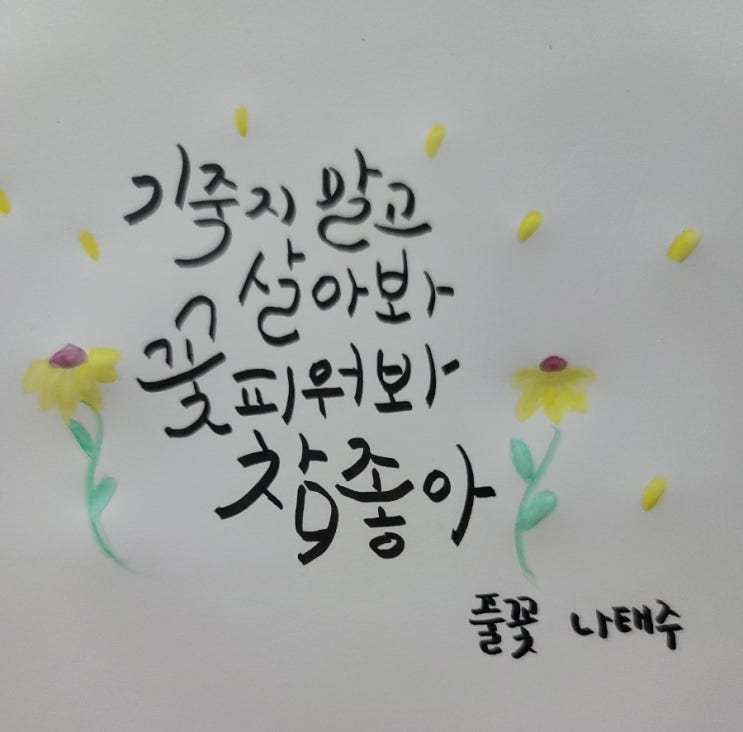 기죽지 말고
살아봐
꽃 피워봐
참 좋아
풀꽃 나태주